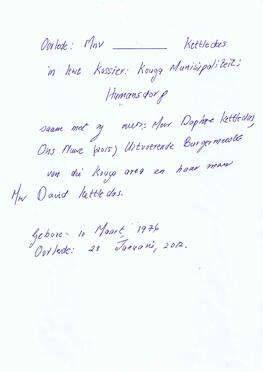 Oorlede: Mnr ________ Kettledas
in hul Kussier: Kouga Munisipaliteit;
Humansdorp
saam met sy niers: Mev Daphne Kettledas,
Ons Nuwe (2015) Uitvoerende Burgermeester
van die Kouga area en haar man
Mnr David Kettledas.
Gebore- 10 Maart, 1976
Oorlede: 28 Januarie, 2012.